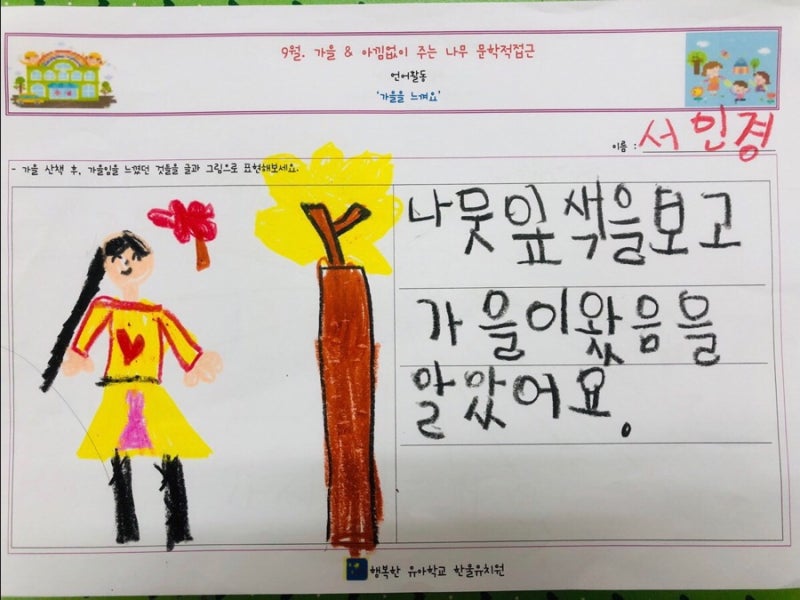 9월. 가을 & 아낌없이 주는 나무 문학적접근
언어활동
'가을을 느껴요'
이름 : 서인경
- 가을 산책 후, 가을임을 느꼈던 것들을 글과 그림으로 표현해보세요.
나뭇잎 색을 보고
가을이왔음을
알았어요.
행복한 유아학교 한울유치원